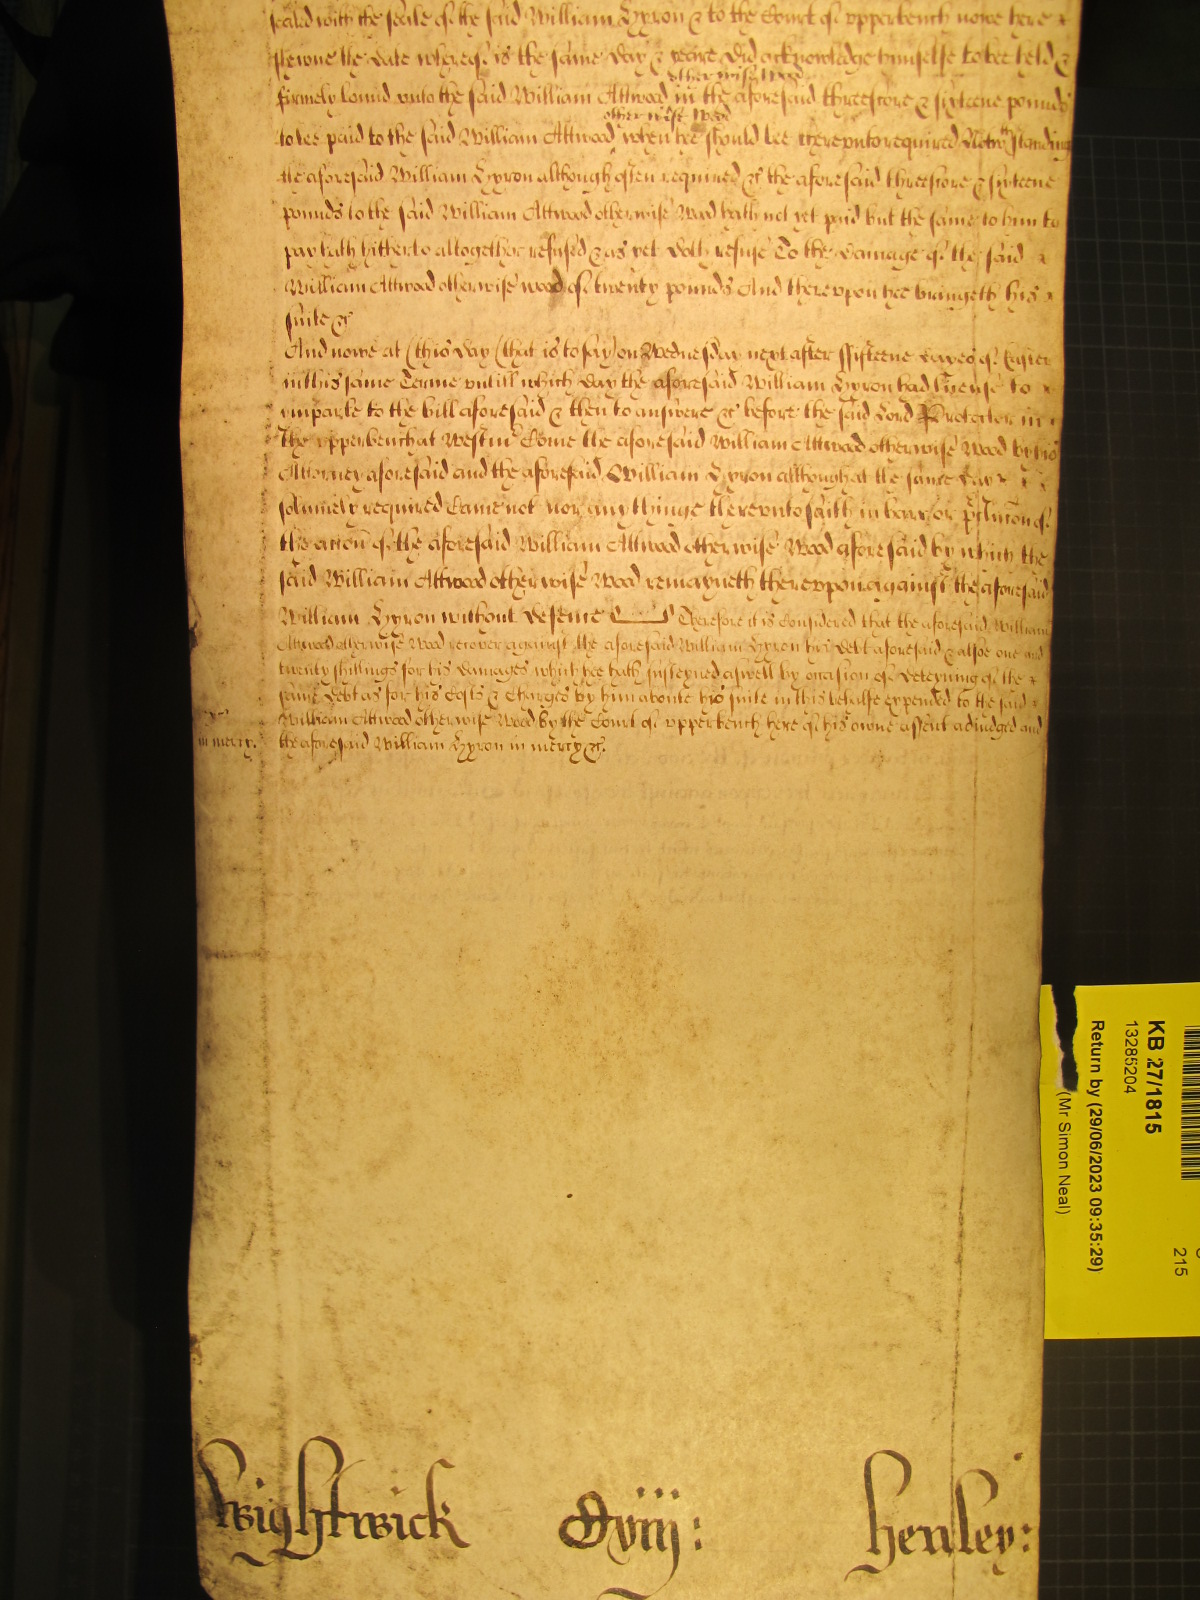 seald with the seale of the said William Lyxon & to the Court of vpperbench nowe here
shewne the date whereof is the same day & yeare did acknowledge himselfe to bee held &
otherwise Wood
firmely bound vnto the said William Attwood in the aforesaid threescore & sixteene pounds
otherwise Wood
to bee paid to the said William Attwood when hee should bee therevnto required Notwthstanding
the aforesaid William Lyxon although often required &c the aforesaid threescore & sixteene
pounds to the said William Attwood otherwise Wood hath not yet paid but the same to him to
pay hath hitherto altogether refused & as yet doth refuse To the damage of the said
William Attwood otherwise wood of twenty pounds And therevpon hee bringeth his
suite &c
And nowe at this day (that is to say) on Wednesday next after ffifteene dayes of Easter
in this same Terme vntill which day the aforesaid William Lyxon had lycense to
imparle to the bill aforesaid & then to answere &c before the said Lord Protector in
the vpperbench at Westmr Come the aforesaid William Attwood otherwise Wood by his
Attorney aforesaid and the aforesaid William Lyxon although at the same day
solemnely required Came not nor any thinge therevnto saith in barr or of
the action of the aforesaid William Attwood otherwise Wood aforesaid by which the
said William Attwood otherwise Wood remayneth therevpon against the aforesaid
William Lyxon without defence Therefore it is Considered that the aforesaid William
Attwood otherwise Wood recover against the aforesaid William Lyxon his debt aforesaid & alsoe one and
twenty shillings for his damages which hee hath susteyned aswell by occasion of deteyning of the
same debt as for his Costs & Charges by him aboute his suite in this behalfe expended to the said
William Attwood otherwise Wood by the Court of vpperbench here of his owne assent adiudged and
in mercy. the aforesaid William Lyxon in mercy &c.
Wightwick
henley:
KB 27/1815
13285204
Return by (29/06/2023 09:35:29)
(Mr Simon Neal)
215